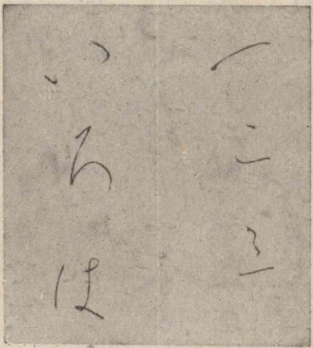 一二三
いろは